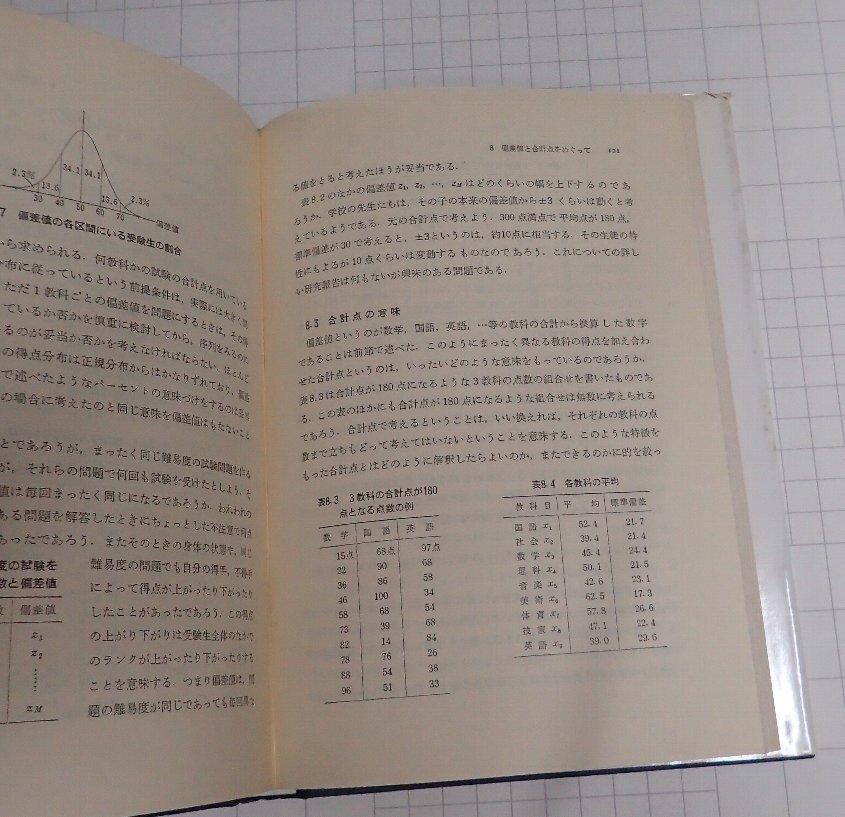 2.3%
34.1
34.1
13.6
13.6
2.3%
30
40
50
60
70
偏差値
7 偏差値の各区間にいる受験生の割合
ら求められる．何教科かの試験の合計点を用いている
布に従っているという前提条件は，実際には大きく
ただ1教科ごとの偏差値を問題にするときは，その得
ているか否かを慎重に検討してから，序列をみるのに
るのが妥当か否かを考えなければならない．ほとんど
の得点分布は正規分布からはかなりずれており，偏差
で述べたようなパーセントの意味づけをするのは
の場合に考えたのと同じ意味を偏差値はもたないこと
とであろうが，まったく同じ難易度の試験問題を作る
が，それらの問題で何回も試験を受けたとしよう．そ
値は毎回まったく同じになるであろうか．われわれの
ある問題を解答したときにちょっとした不注意で何点
あったであろう．またそのときの身体の状態や，同じ
度の試験を
数と偏差値
偏差値
z1
z2
……
zM
難易度の問題でも自分の得手，不得手
によって得点が上がったり下がったり
したことがあったであろう．この得点
の上がり下がりは受験生全体のなかで
のランクが上がったり下がったりする
ことを意味する．つまり偏差値は，問
題の難易度が同じであっても毎回異な
8 偏差値と合計点をめぐって
る値をとると考えたほうが妥当である．
表8.2のなかの偏差値z1, z2, …, zMはどのくらいの幅を上下するのであ
ろうか．学校の先生たちは，その子の本来の偏差値から±3くらいは動くと考
えているようである．元の合計点で考えよう．300点満点で平均点が180点，
標準偏差が30で考えると，±3というのは，約10点に相当する．その生徒の特
性にもよるが10点くらいは変動するものなのであろう．これについての詳し
い研究報告は何もないが興味のある問題である．
8.3 合計点の意味
偏差値というのが数学，国語，英語，…等の教科の合計から換算した数字
であることは前節で述べた．このようにまったく異なる教科の得点を加え合わ
せた合計点というのは，いったいどのような意味をもっているのであろうか．
表8.3は合計点が180点になるような3教科の点数の組合せを書いたものであ
る．この表のほかにも合計点が180点になるような組合せは無数に考えられる
であろう．合計点で考えるということは，いい換えれば，それぞれの教科の点
数まで立ちもどって考えてはいないということを意味する．このような特徴を
もった合計点とはどのように解釈したらよいのか，またできるのかに的を絞っ
表8.3 3教科の合計点が180
点となる点数の例
数学 国語 英語
15点 68点 97点
22 90 68
36 86 58
46 100 34
58 68 54
73 39 68
82 14 84
78 76 26
88 54 38
96 51 33
表8.4 各教科の平均
教科目 平均 標準偏差
国語 x1 52.4 21.7
社会 x2 39.4 21.4
数学 x3 45.4 24.4
理科 x4 50.1 21.5
音楽 x5 42.6 23.1
美術 x6 62.5 17.3
体育 x7 57.8 26.6
技家 x8 47.1 22.4
英語 x9 39.0 29.6